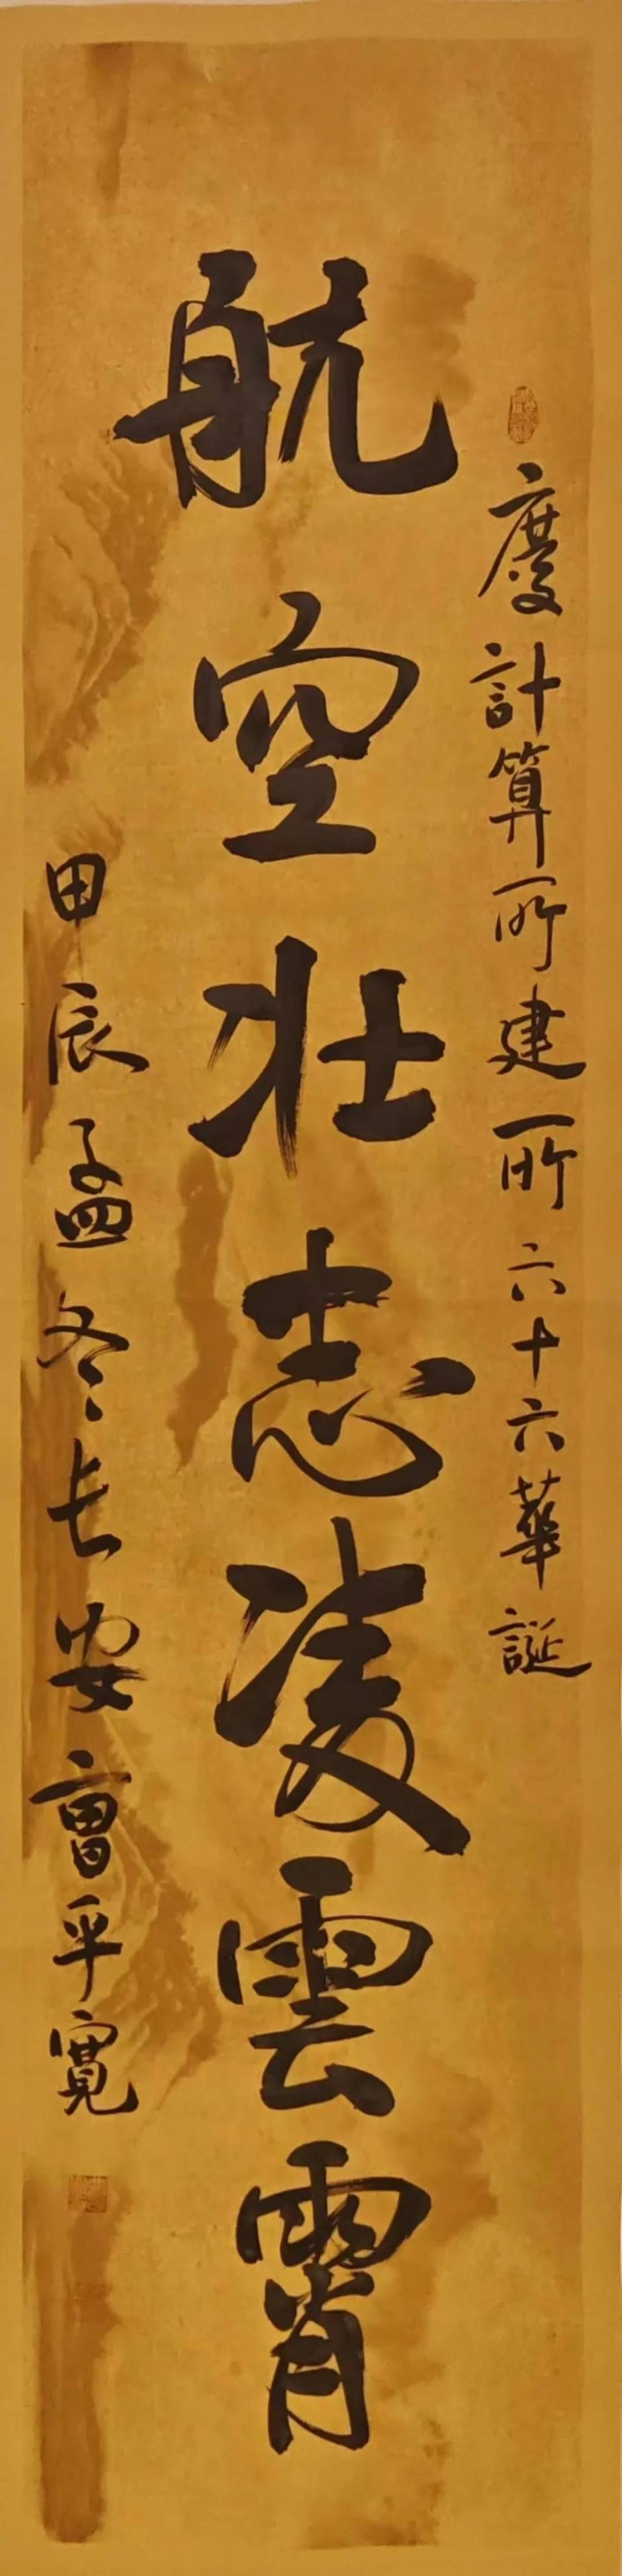 慶計算所建所六十六華誕
航空壯志凌雲霄
甲辰孟冬長安曹平寬